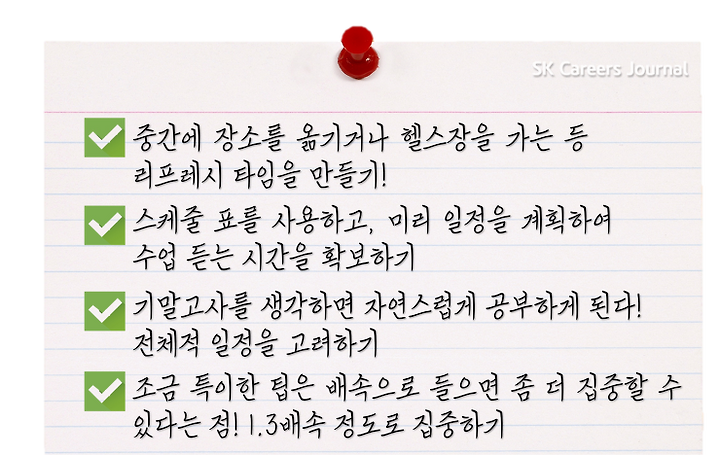 SK Careers Journal
중간에 장소를 옮기거나 헬스장을 가는 등
리프레시 타임을 만들기!
스케줄 표를 사용하고, 미리 일정을 계획하여
수업 듣는 시간을 확보하기
기말고사를 생각하면 자연스럽게 공부하게 된다!
전체적 일정을 고려하기
조금 특이한 팁은 배속으로 들으면 좀 더 집중할 수
있다는 점! 1.3배속 정도로 집중하기